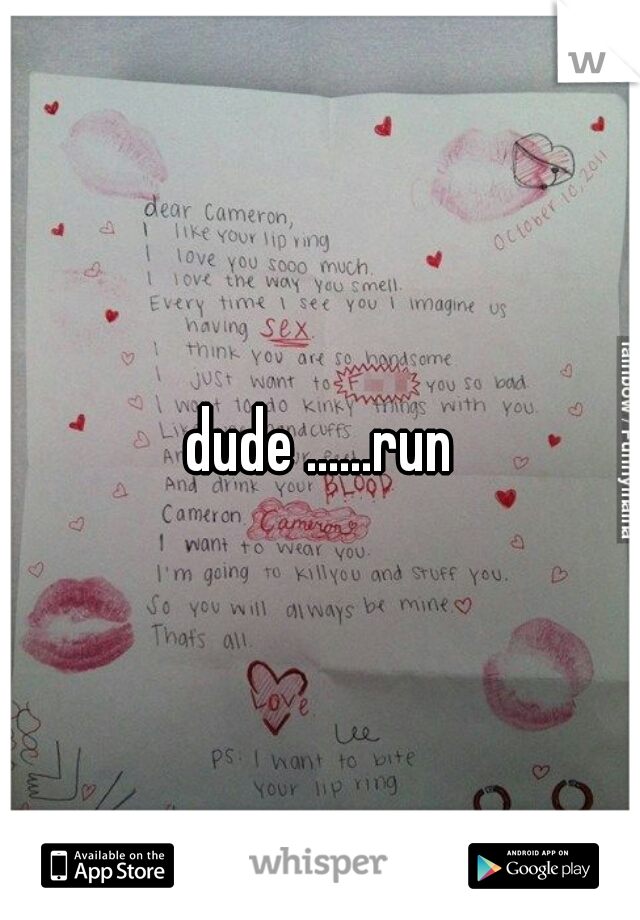 w
October 10, 2011
dear Cameron,
I like your lip ring
I love you sooo much.
I love the way you smell.
Every time I see you I imagine us
having sex.
I think you are so handsome
I just want to F you so bad.
I want to do kinky things with you.
Like handcuffs
dude ......run
And drink your BLOOD.
Cameron Cameron
I want to wear you.
I'm going to kill you and stuff you.
So you will always be mine.
Thats all.
Love
Lee
PS: I want to bite
your lip ring
Available on the
App Store
whisper
ANDROID APP ON
Google play